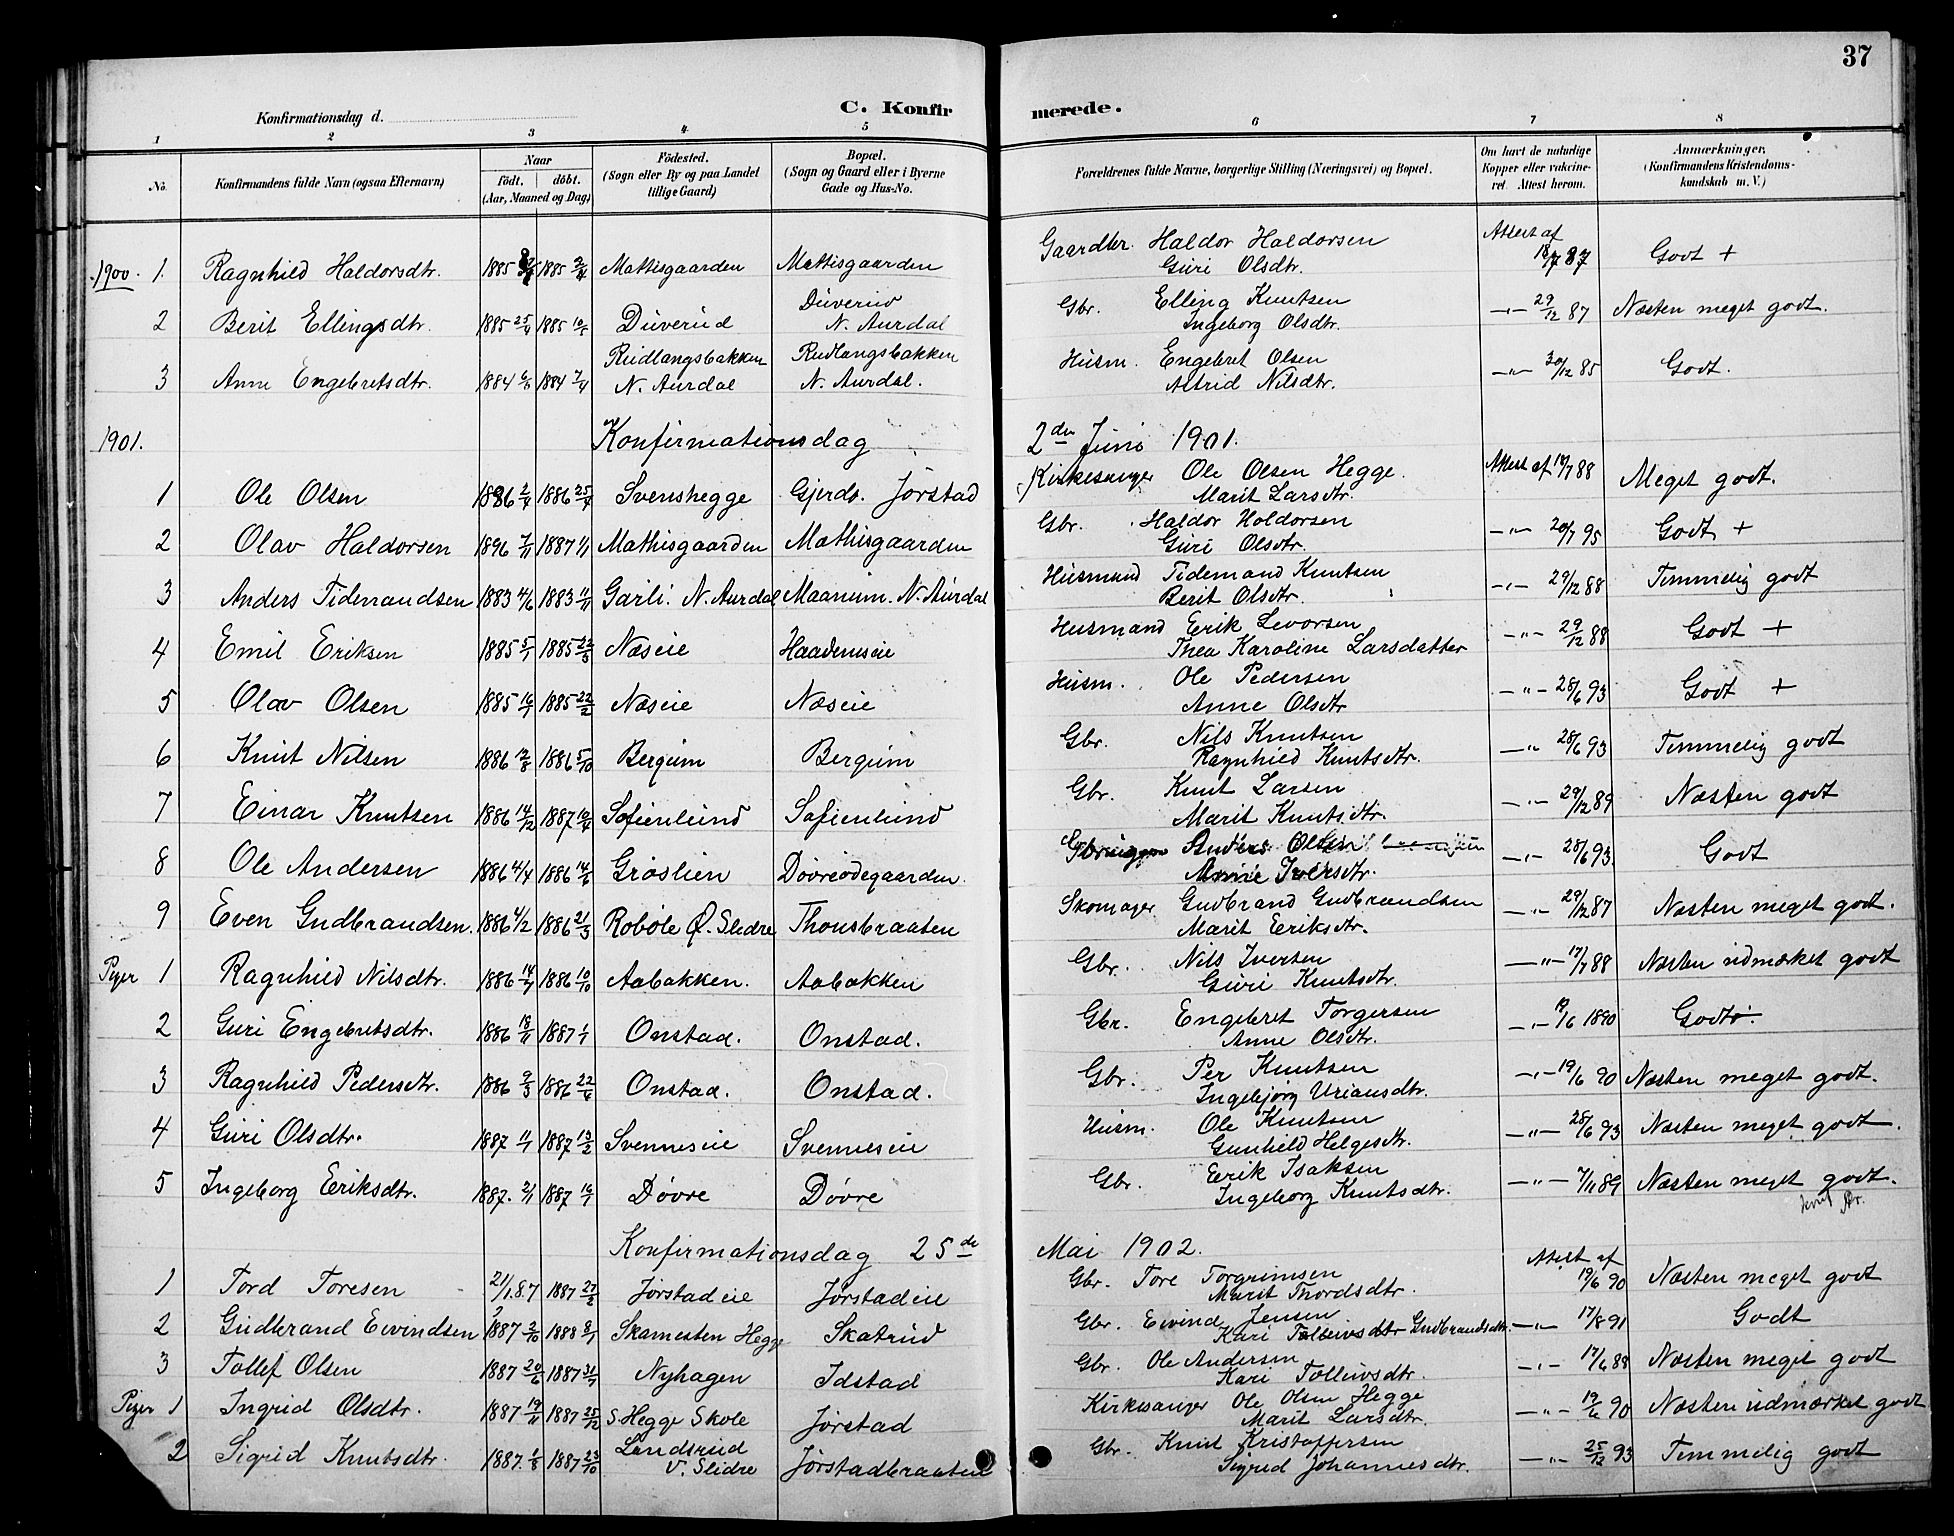 37
C. Konfirmerede.
Konfirmationsdag d.
1 2 3 4 5 6 7 8
No.
Konfirmandens fulde Navn (ogsaa Efternavn)
Naar
født. døbt.
(Aar, Maaned og Dag)
Fødested.
(Sogn eller By og paa Landet
tillige Gaard)
Bopæl.
(Sogn og Gaard eller i Byerne
Gade og Hus-No.
Forældrenes fulde Navne, borgerlige Stilling (Næringsvei) og Bopæl.
Om havt de naturlige
Kopper eller vakcine-
ret. Attest herom.
Anmærkninger.
(Konfirmandens Kristendoms-
kundskab m. V.)
1900. 1. Ragnhild Haldorsdtr. 1885 1885 Mattisgaarden Mattisgaarden Gaardbr. Haldor Haldorsen Attest af 87 Godt +
Guri Olsdtr.
2 Berit Ellingsdtr. 1885 25/4 1885 10/5 Düverud Düverud Gbr. Elling Knutsen —"— 29/12 87 Næsten meget godt.
N. Aurdal Ingeborg Olsdtr.
3 Anne Engebretsdtr. 1884 1884 Rudlangsbakken Rudlangsbakken Husm. Engebret Olsen —"— 30/12 85 Godt.
N. Aurdal N. Aurdal. Astrid Nilsdtr.
1901. Konfirmationsdag 2den Juni 1901.
1 Ole Olsen 1886 2/4 1886 25/4 Svenshegge Gjerds. Jørstad Kirkesanger Ole Olsen Hegge. Attest af 88 Meget godt.
Marit Larsdtr.
2 Olav Haldorsen 1896 7/11 1887 1/1 Mathisgaarden Mathisgaarden Gbr. Haldor Holdorsen —"— 20/7 95 Godt +
Guri Olsdtr.
3 Anders Tidemandsen 1883 4/6 1883 11/11 Garli. N. Aurdal Maanum. N. Aurdal Husmand Tidemand Knutsen —"— 29/12 88 Temmelig godt
Berit Olsdtr.
4 Emil Eriksen 1885 5/1 1885 22/3 Næseie Haademseie Husmand Erik Levorsen —"— 29/12 88 Godt +
Thea Karoline Larsdatter
5 Olav Olsen 1885 16/1 1885 22/2 Næseie Næseie Husm. Ole Pedersen —"— 28/6 93 Godt +
Anne Olsdtr
6 Knut Nilsen 1886 12/8 1886 5/10 Bergum Bergum Gbr. Nils Knutsen —"— 28/6 93 Temmelig godt
Ragnhild Knutsdtr.
7 Einar Knutsen 1886 14/12 1887 10/4 Sofienlund Sofienlund Gbr. Knut Larsen —"— 29/12 89 Næsten godt
Marit Knutsdtr.
8 Ole Andersen 1886 4/4 1886 14/6 Grøslien Døvreødegaarden. Anders Olsen —"— 28/6 93 Godt
Iversdtr.
9 Even Gudbrandsen. 1886 4/2 1886 21/3 Robøle Ø. Slidre Thonsbraaten Skomager Gudbrand Gudbrandsen —"— 29/12 87 Næsten meget godt.
Marit Eriksdtr.
Piger 1 Ragnhild Nilsdtr. 1886 14/9 1886 10/10 Aabakken. Aabakken Gbr. Nils Iversen —"— 17/7 88 Næsten udmærket godt
Guri Knutsdtr.
2 Guri Engebretsdtr. 1886 18/11 1887 1/1 Onstad. Onstad. Gbr. Engebret Torgersen —"— 19/6 1890 Godt
Anne Olsdtr.
3 Ragnhild Pedersdtr. 1886 9/3 1886 22/4 Onstad. Onstad. Gbr. Per Knutsen —"— 19/6 90 Næsten meget godt.
Ingebjørg Uriansdtr.
4 Guri Olsdtr. 1887 11/1 1887 13/2 Svenneseie Svenneseie Husm. Ole Knutsen —"— 28/6 93 Næsten meget godt.
Gunhild Helgesdtr.
5 Ingeborg Eriksdtr. 1887. 2/1 1887 16/1 Døvre Døvre Gbr. Erik Isaksen —"— 7/11 89 Næsten meget godt.
Ingeborg Knutsdtr.
Konfirmationsdag 25de Mai 1902.
1 Tord Toresen 21/1.87 1887 27/2 Jørstadeie Jørstadeie Gbr. Tore Torgrimsen Attest af 19/6 90 Næsten meget godt
Marit Thordsdtr.
2 Gudbrand Eivindsen 1887 2/10 1888 8/1 Skamesten Hegge Skatrud Gbr. Eivind Jensen —"— 17/8 91 Godt
Kari Tolleivsdtr Gudbrandsdtr.
3 Tollef Olsen 1887 20/6 1887 31/7 Nyhagen Idstad Gbr. Ole Andersen —"— 17/6 88 Næsten meget godt
Kari Tolleivsdtr.
Piger 1 Ingrid Olsdtr. 1887 19/11 1887 25/12 S. Hegge Skole Jørstad Kirkesanger Ole Olsen Hegge —"— 19/6 90 Næsten udmærket godt
Marit Larsdtr.
2 Sigrid Knutsdtr. 1887. 1/8 1887 23/10 Landsrud Jørstadbraaten Gbr. Knut Kristoffersen —"— 25/12 93 Temmelig godt
V. Slidre Sigrid Johannesdtr.